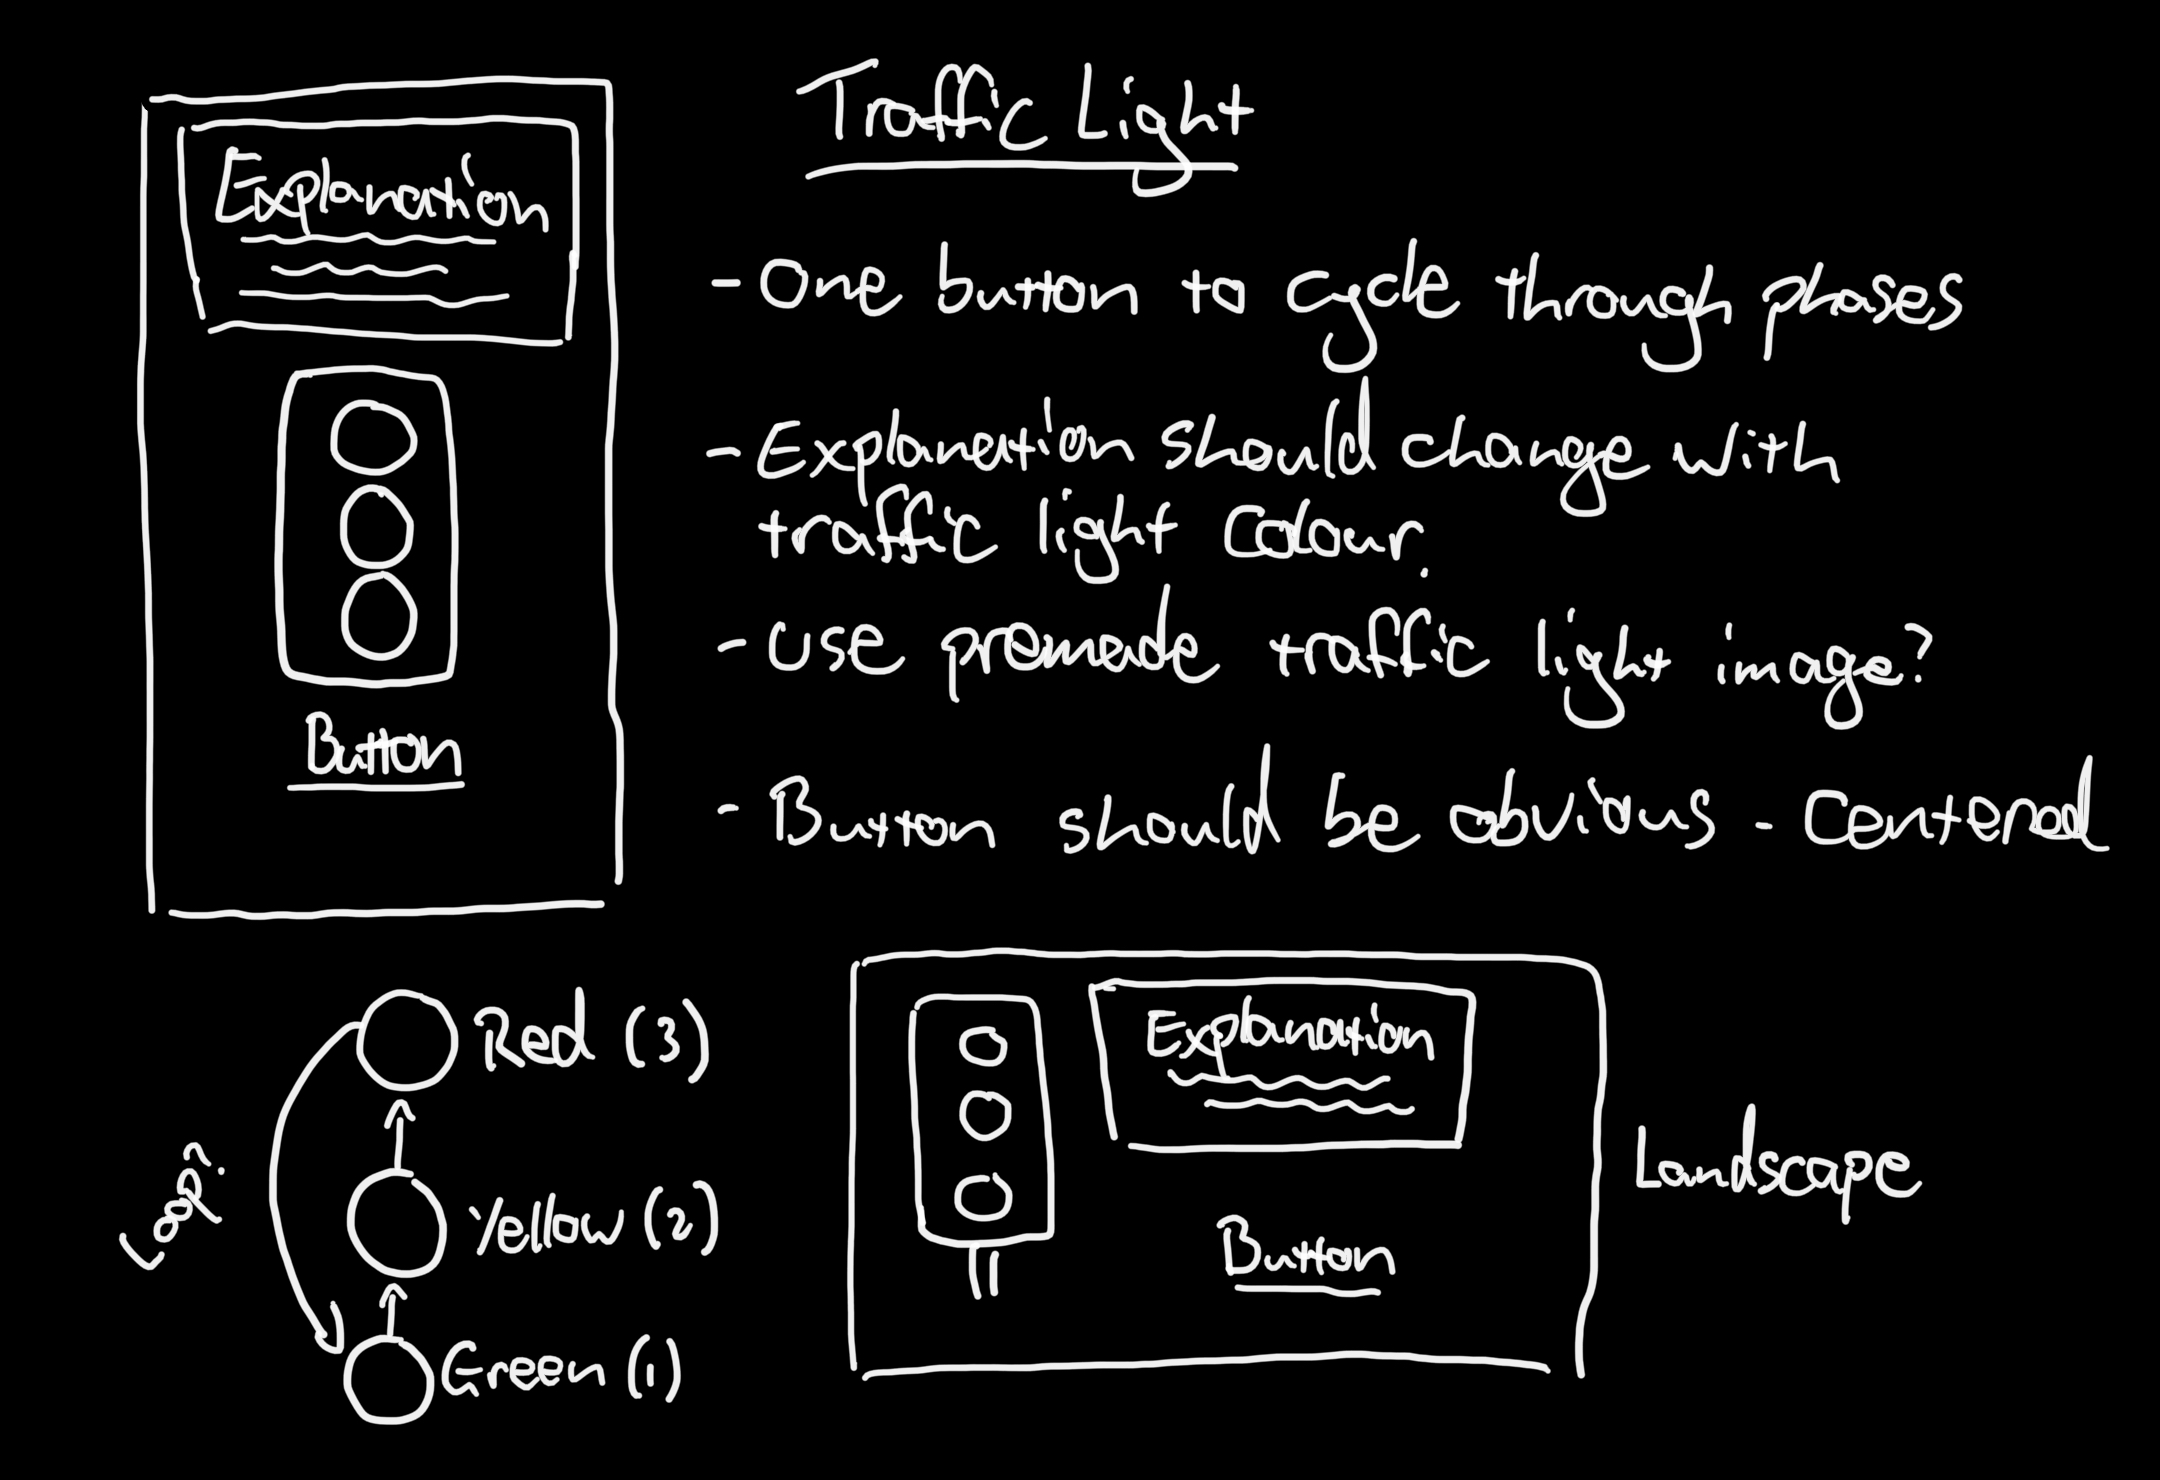 Traffic Light
Explanation
Button
- One button to cycle through phases
- Explanation should change with
traffic light colour.
- Use premade traffic light image?
- Button should be obvious - Centered
Loop?
Red (3)
Yellow (2)
Green (1)
Explanation
Button
Landscape